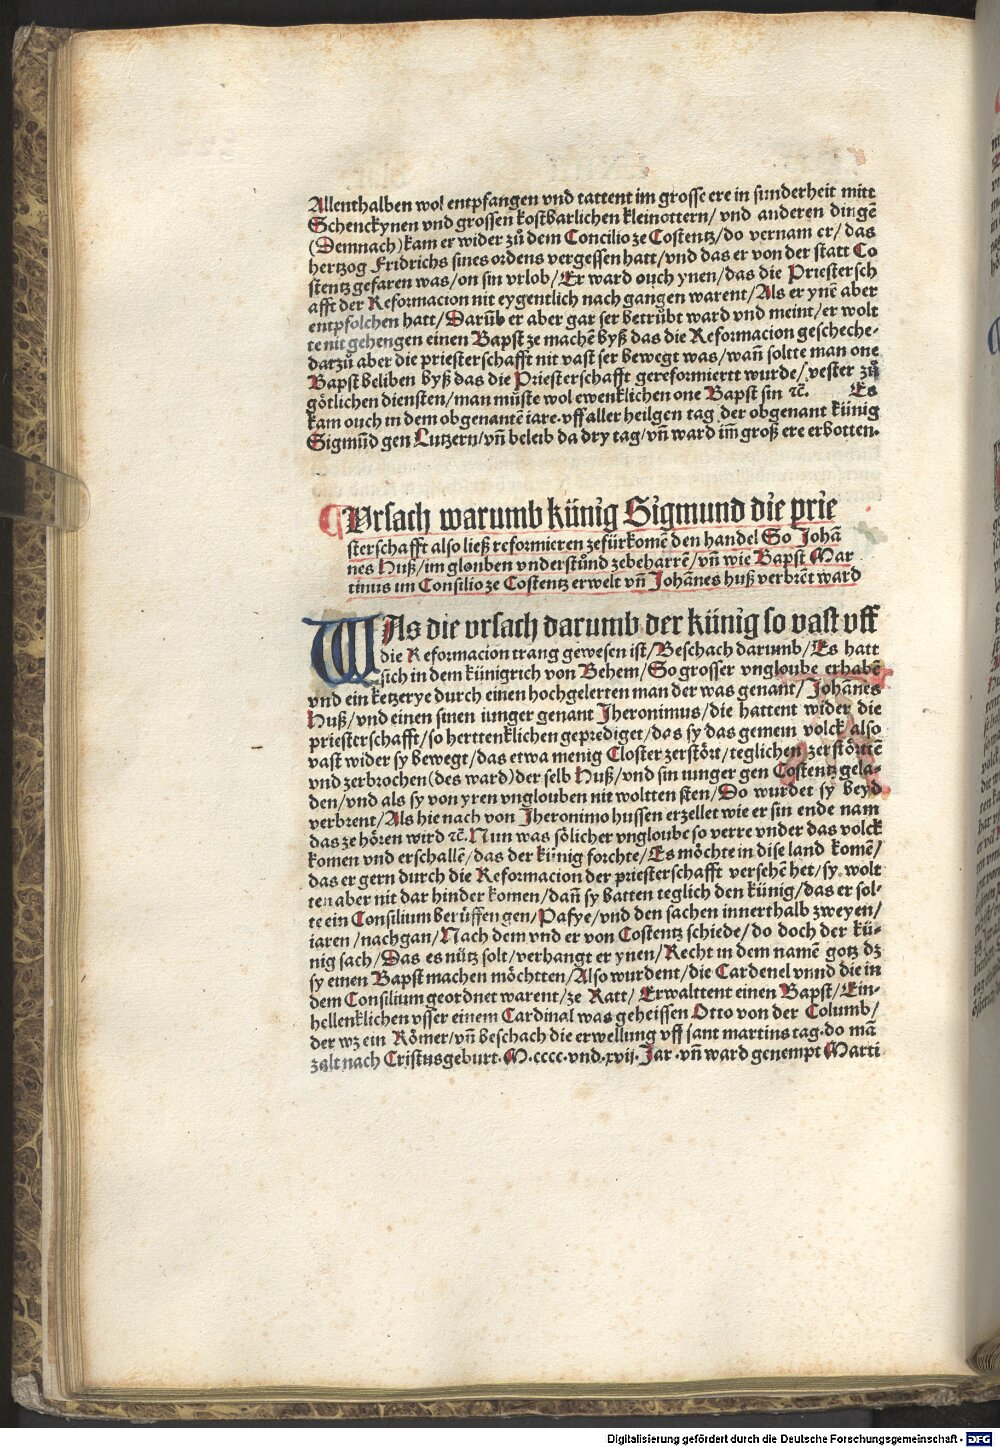 Allenthalben wol entpfangen vnd tattent im grosse ere in sunderheit mitt
Schenckynen vnd grossen kostbarlichen kleinottern/ vnd anderen dingē
(Demnach) kam er wider zů dem Concilio ze Costentz/ do vernam er/ das
hertzog Fridrichs sines ordens vergessen hatt/ vnd das er von der statt Co
stentz gefaren was/ on sin vrlob/ Er ward ouch ynen/ das die Priestersch
afft der Reformacion nit eygentlich nach gangen warent/ Als er ynē aber
entpfolchen hatt/ Darūb er aber gar ser betrübt ward vnd meint/ er wolt
te nit gehengen einen Bapst ze machē byß das die Reformacion gescheche-
darzů aber die priesterschafft nit vast ser bewegt was/ wañ soltte man one
Bapst beliben byß das die Priesterschafft gereformiertt wurde/ vester zů
götlichen diensten/ man müste wol ewenklichen one Bapst sin ⁊c. Es
kam ouch in dem obgenantē iare. vff aller heilgen tag der obgenant künig
Sigmūd gen Lutzern/ vñ beleib da dry tag/ vñ ward im̄ groß ere erbotten.
¶ Vrsach warumb künig Sigmund die prie
sterschafft also ließ reformieren ze fürkomē den handel So Johā
nes Huß/ im glouben vnderstůnd ze beharrē/ vñ wie Bapst Mar
tinus im Consilio ze Costentz erwelt vñ Johānes huß verbrēt ward
WAs die vrsach darumb der künig so vast vff
die Reformacion trang gewesen ist/ Beschach darumb/ Es hatt
sich in dem künigrich von Behem/ So grosser vngloube erhabē
vnd ein ketzerye durch einen hochgelerten man der was genant/ Johānes
Huß/ vnd einen sinen iunger genant Jheronimus/ die hattent wider die
priesterschafft/ so herttenklichen geprediget/ das sy das gemein volck also
vast wider sy bewegt/ das etwa menig Closter zerstört/ teglichen zerstörttē
vnd zerbrochen (des ward) der selb Huß/ vnd sin iunger gen Costentz gela-
den/ vnd als sy von yren vnglouben nit woltten sten/ Do wurdet sy beyd
verbrent/ Als hie nach von Jheronimo hussen erzellet wie er sin ende nam
das ze hören wird ⁊c. Nun was sölicher vngloube so verre vnder das volck
komen vnd erschallē/ das der künig forchte/ Es möchte in dise land komē/
das er gern durch die Reformacion der priesterschafft versehē het/ sy wolt
ten aber nit dar hinder komen/ dañ sy batten teglich den künig/ das er sol-
te ein Consilium berüffen gen/ Pafye/ vnd den sachen innerthalb zweyen/
iaren/ nachgan/ Nach dem vnd er von Costentz schiede/ do doch der kü-
nig sach/ Das es nütz solt/ verhangt er ynen/ Recht in dem namē gotz dz
sy einen Bapst machen möchtten/ Also wurdent/ die Cardenel vnnd die in
dem Consilium geordnet warent/ ze Ratt/ Erwalttent einen Bapst/ Ein-
hellenklichen vsser einem Cardinal was geheissen Otto von der Columb/
der wz ein Römer/ vñ beschach die erwellung vff sant martins tag. do mā
zalt nach Cristus geburt. M. cccc. vnd. xvij. Jar. vñ ward genempt Marti
Digitalisierung gefördert durch die Deutsche Forschungsgemeinschaft - DFG